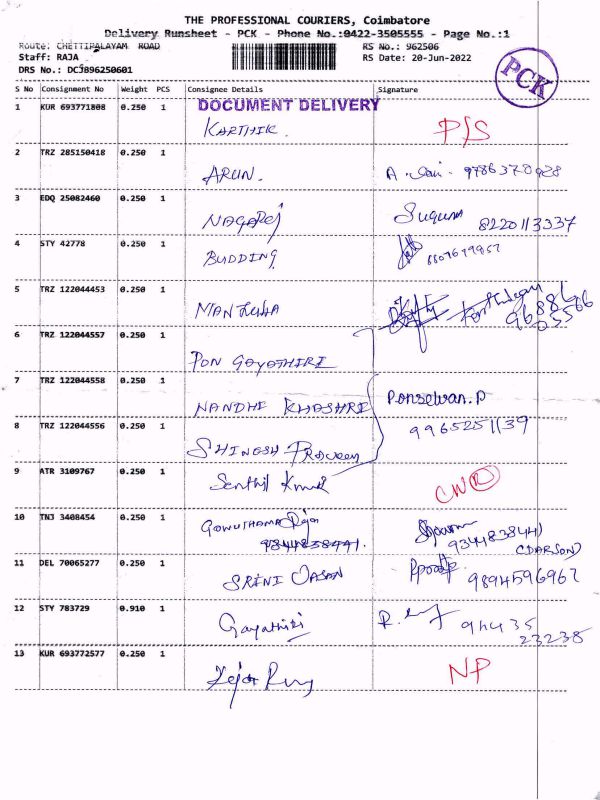 THE PROFESSIONAL COURIERS, Coimbatore
Delivery Runsheet - PCK - Phone No.:0422-3505555 - Page No.:1
Route: CHETTIPALAYAM ROAD RS No.: 962506
Staff: RAJA RS Date: 20-Jun-2022
DRS No.: DCJB96250601
PCK
S No Consignment No Weight PCS Consignee Details Signature
DOCUMENT DELIVERY
1 KUR 693771808 0.250 1 KARTHIK. P/S
2 TRZ 285150418 0.250 1 ARUN. A. 9786370928
3 EDQ 25082460 0.250 1 NAGARAJ Suguna 8220113337
4 STY 42778 0.250 1 BUDDING
5 TRZ 122044453 0.250 1 MANJULA 96886
05566
6 TRZ 122044557 0.250 1 PON GAYATHIRI
7 TRZ 122044558 0.250 1 NANDHI KHASHRI Ponselvan.P
9965251139
8 TRZ 122044556 0.250 1 SHINESH PRAVEEN
9 ATR 3109767 0.250 1 Senthil Kumar CNR
10 TNJ 3408454 0.250 1 GOWUTHAMA Rajan
9344838441. 9344838441
(DARSON)
11 DEL 70065277 0.250 1 SRINI VASAN 9894596962
12 STY 783729 0.910 1 Gayathiri R. 94435
23238
13 KUR 693772577 0.250 1 NP